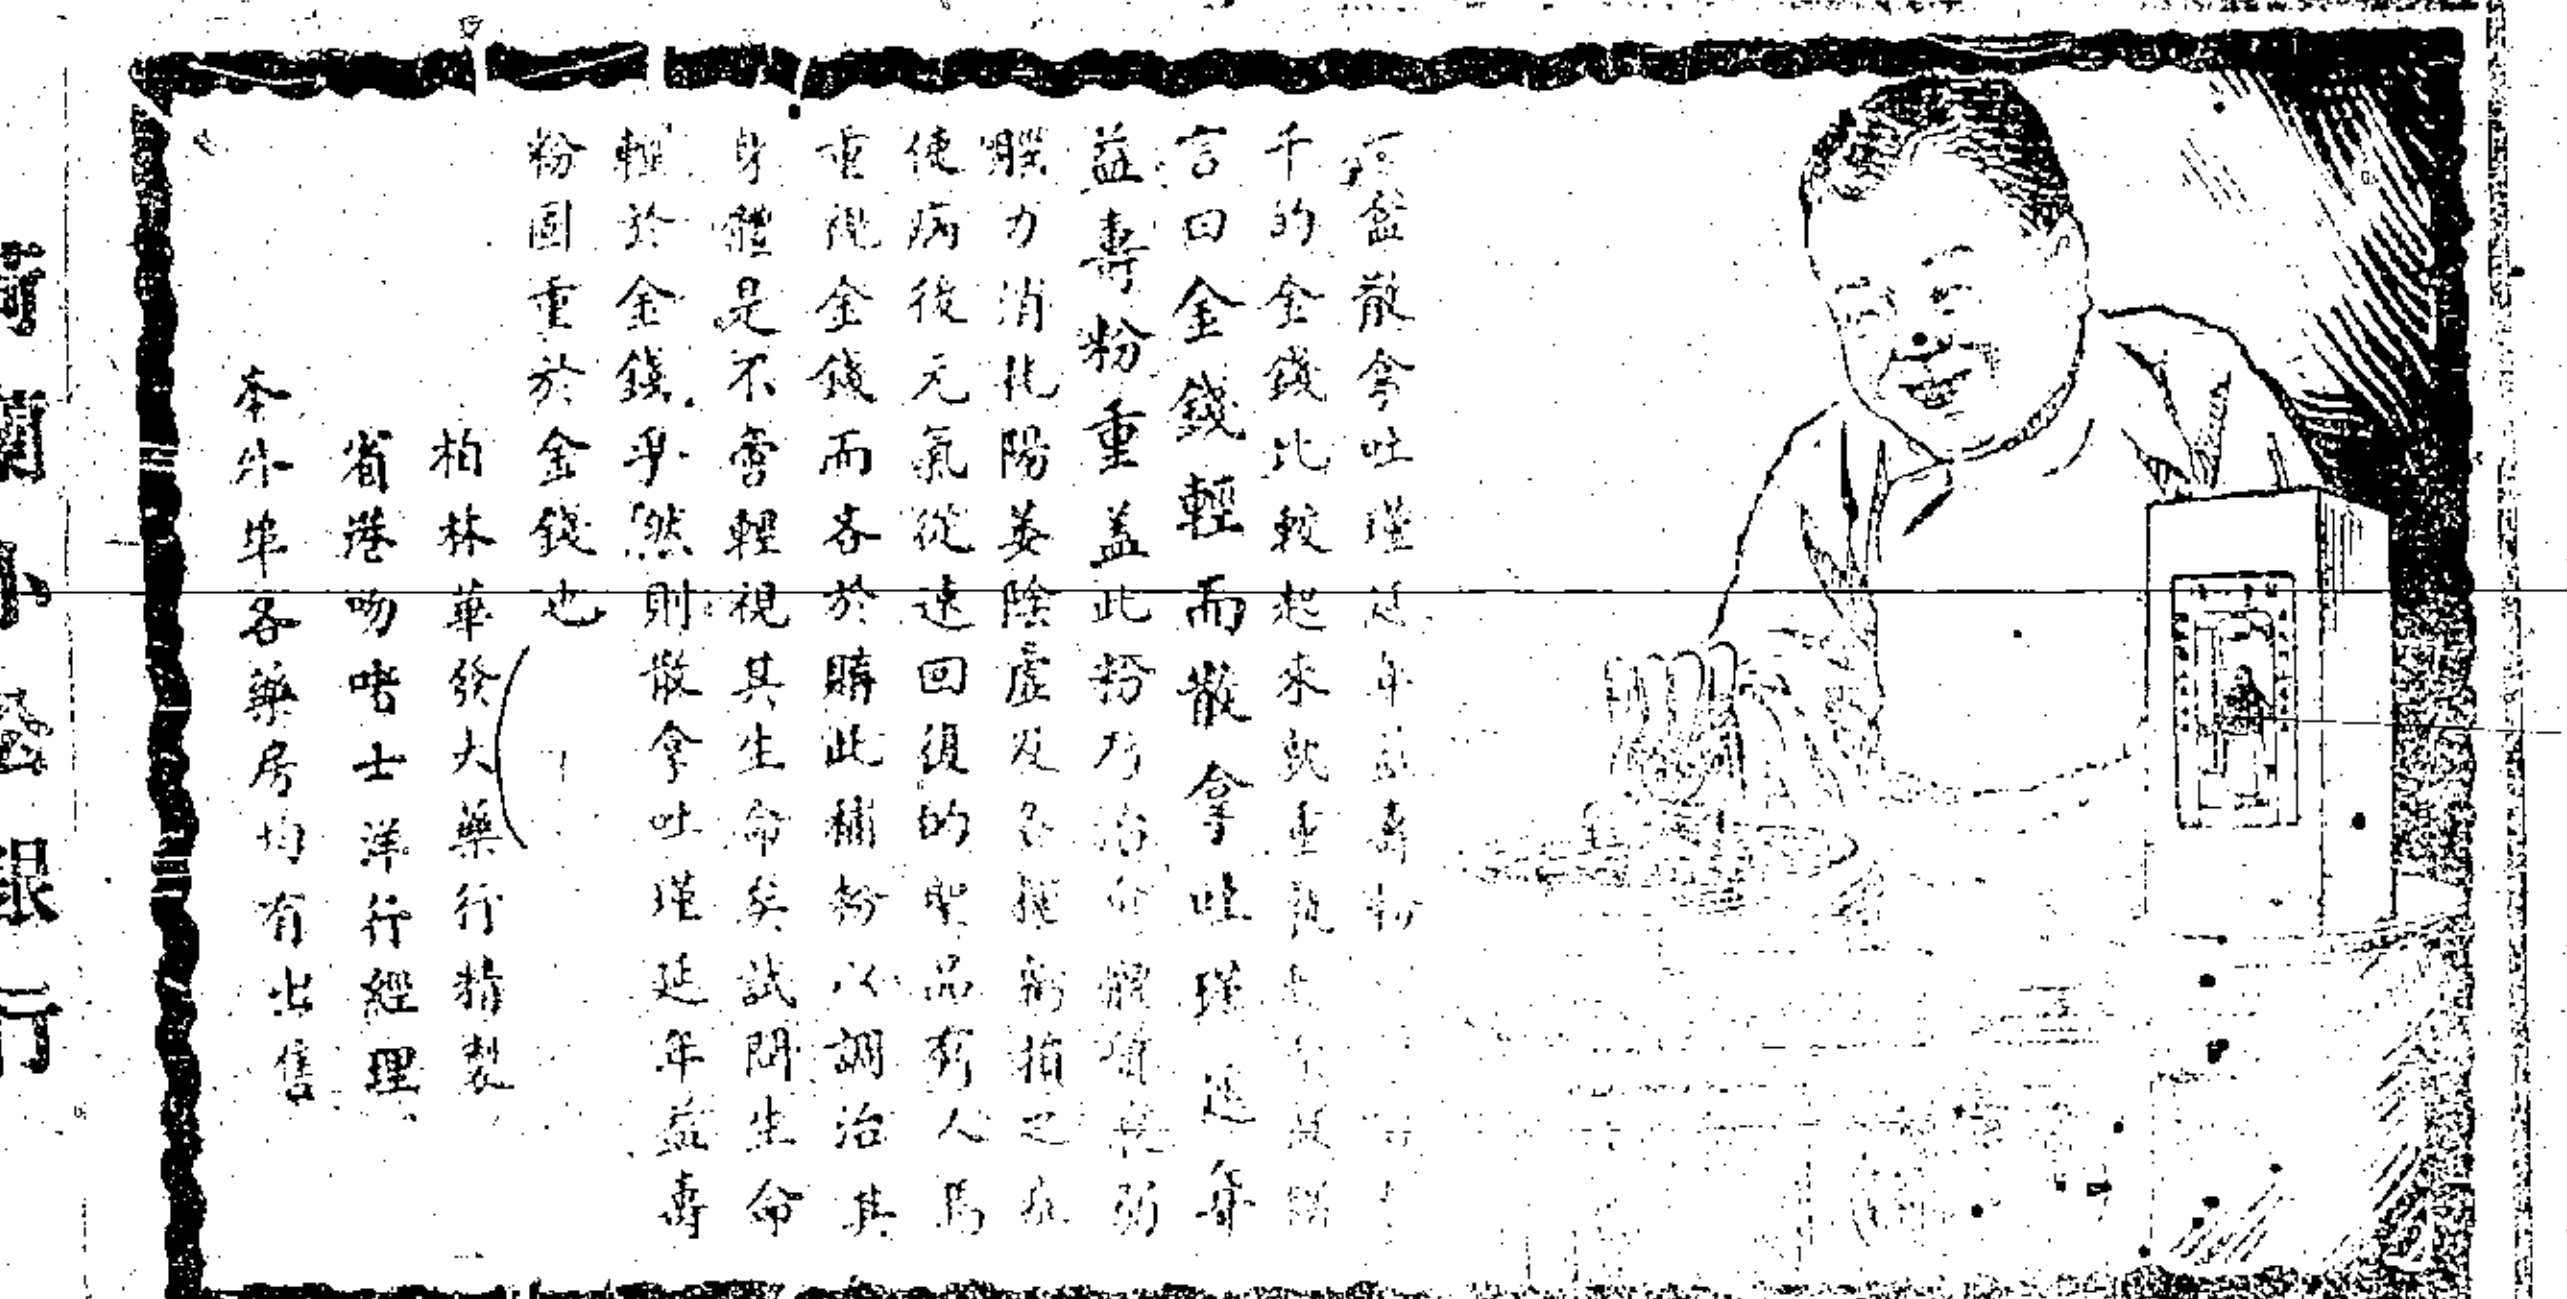 盆散拿吐瑾延年益壽粉
千的金錢比較起來就重
言曰金錢輕而散拿吐瑾延年
益壽粉重盖此粉乃治
腦力消耗陽萎陰虛及各
使病後元氣從速回復的聖品有人焉
重視金錢而吝於購此補粉以調治其
身體是不啻輕視其生命矣試問生命
輕於金錢乎然則散拿吐瑾延年益壽
粉固重於金錢也
柏林華發大藥行精製
省港吻啫士洋行經理
本外埠各藥房均有出售
銀行